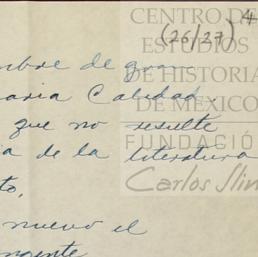 CENTRO DE
ESTUDIOS
DE HISTORIA
DE MEXICO
FUNDACIÓ
Carlos Slim
4
(26/27)
mbre de gran
aria Calidad
que no resulte
a de la literatura
to,
nuevo el
ngente